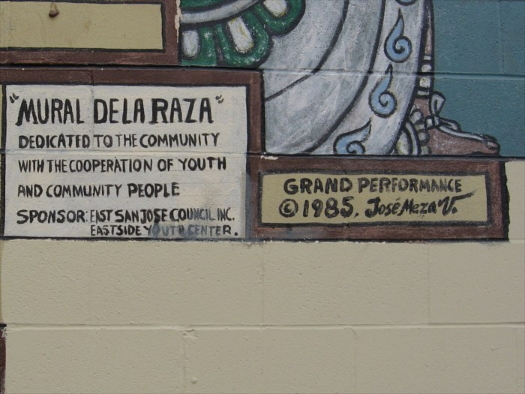 "MURAL DE LA RAZA"
DEDICATED TO THE COMMUNITY
WITH THE COOPERATION OF YOUTH
AND COMMUNITY PEOPLE
SPONSOR: EAST SAN JOSE COUNCIL INC.
EASTSIDE YOUTH CENTER.
GRAND PERFORMANCE
© 1985. José Meza V.